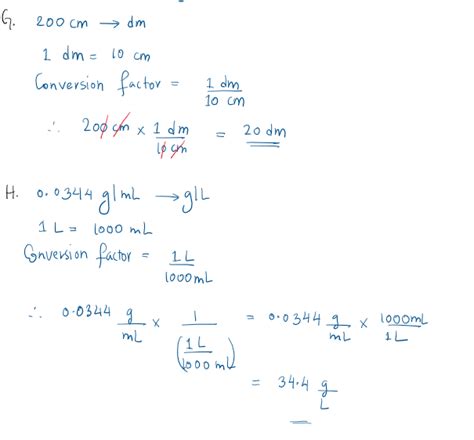 G. 200 cm → dm
1 dm = 10 cm
Conversion factor = 1 dm / 10 cm
∴ 200 cm × 1 dm / 10 cm = 20 dm
H. 0.0344 g/mL → g/L
1 L = 1000 mL
Conversion factor = 1L / 1000mL
∴ 0.0344 g/mL × 1 / (1L / 1000 mL) = 0.0344 g/mL × 1000mL / 1L
= 34.4 g/L